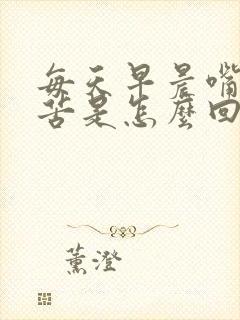 每天早晨嘴
苦是怎麼回
薰澄